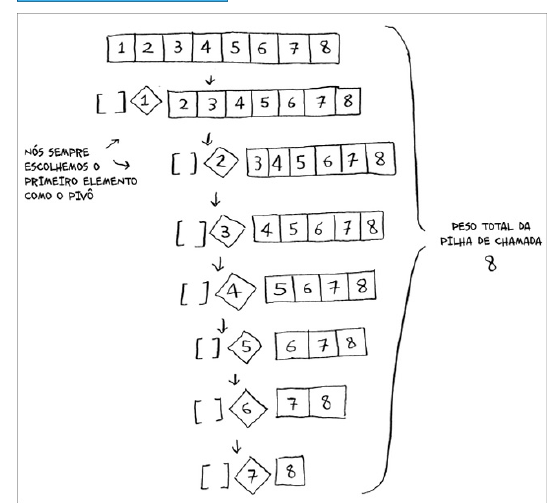 1 2 3 4 5 6 7 8
[ ] 1 2 3 4 5 6 7 8
[ ] 2 3 4 5 6 7 8
NÓS SEMPRE
ESCOLHEMOS O
PRIMEIRO ELEMENTO
COMO O PIVÔ
[ ] 3 4 5 6 7 8
[ ] 4 5 6 7 8
[ ] 5 6 7 8
[ ] 6 7 8
[ ] 7 8
PESO TOTAL DA
PILHA DE CHAMADA
8